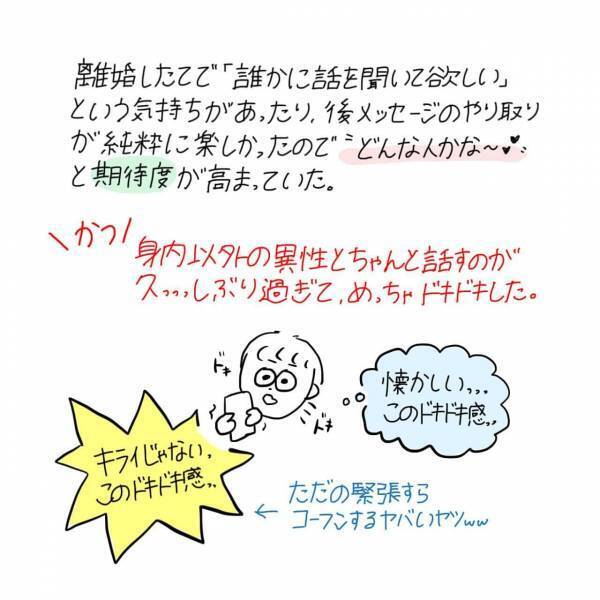 離婚したてで「誰かに話を聞いて欲しい」
という気持ちがあったり、後メッセージのやり取り
が純粋に楽しかったので〝どんな人かな～♥♥〟
と期待度が高まっていた。
かつ
身内以外の異性とちゃんと話すのが
久っっっしぶり過ぎて、めっちゃドキドキした。
ドキ
ドキ
懐かしい、、、
このドキドキ感、、
キライじゃない、
このドキドキ感、、
← ただの緊張すら
コーフンするヤバいヤツww